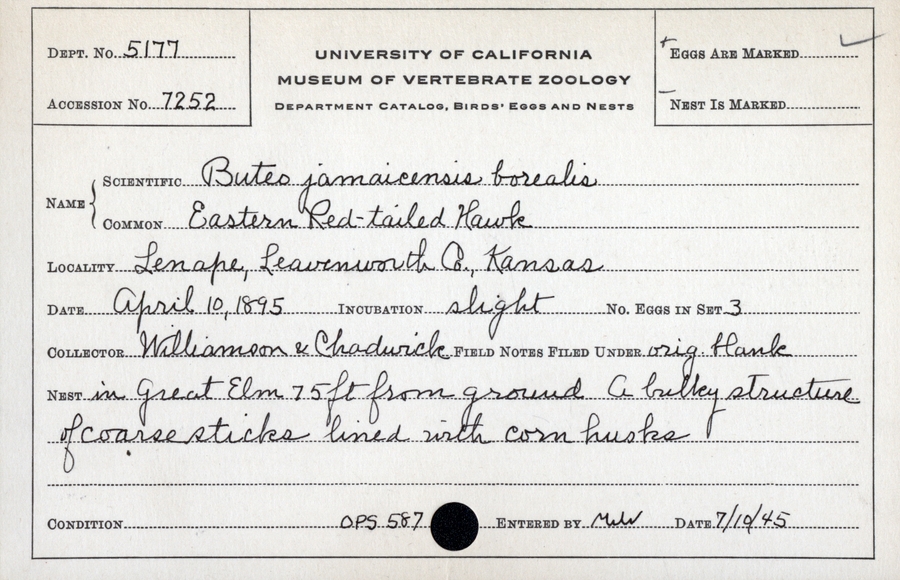 DEPT. No. 5177
ACCESSION No. 7252
UNIVERSITY OF CALIFORNIA
MUSEUM OF VERTEBRATE ZOOLOGY
DEPARTMENT CATALOG, BIRDS' EGGS AND NESTS
+ EGGS ARE MARKED ✓
- NEST IS MARKED
NAME
SCIENTIFIC Buteo jamaicensis borealis
COMMON Eastern Red-tailed Hawk
LOCALITY Lenape, Leavenworth Co., Kansas
DATE April 10, 1895 INCUBATION slight NO. EGGS IN SET 3
COLLECTOR Williamson & Chadwick FIELD NOTES FILED UNDER orig. blank
NEST in Great Elm 75ft from ground A bulky structure
of coarse sticks lined with corn husks
CONDITION OPS 587 ENTERED BY DATE 7/10/45